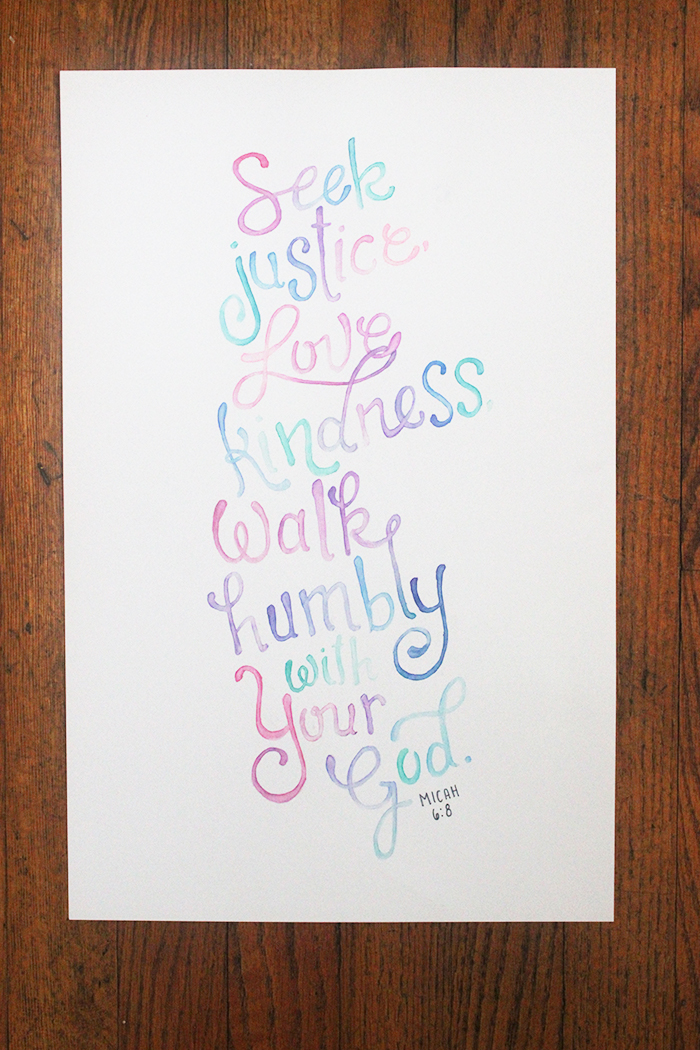 Seek
justice.
Love
kindness.
Walk
humbly
with
Your
God.
MICAH
6:8